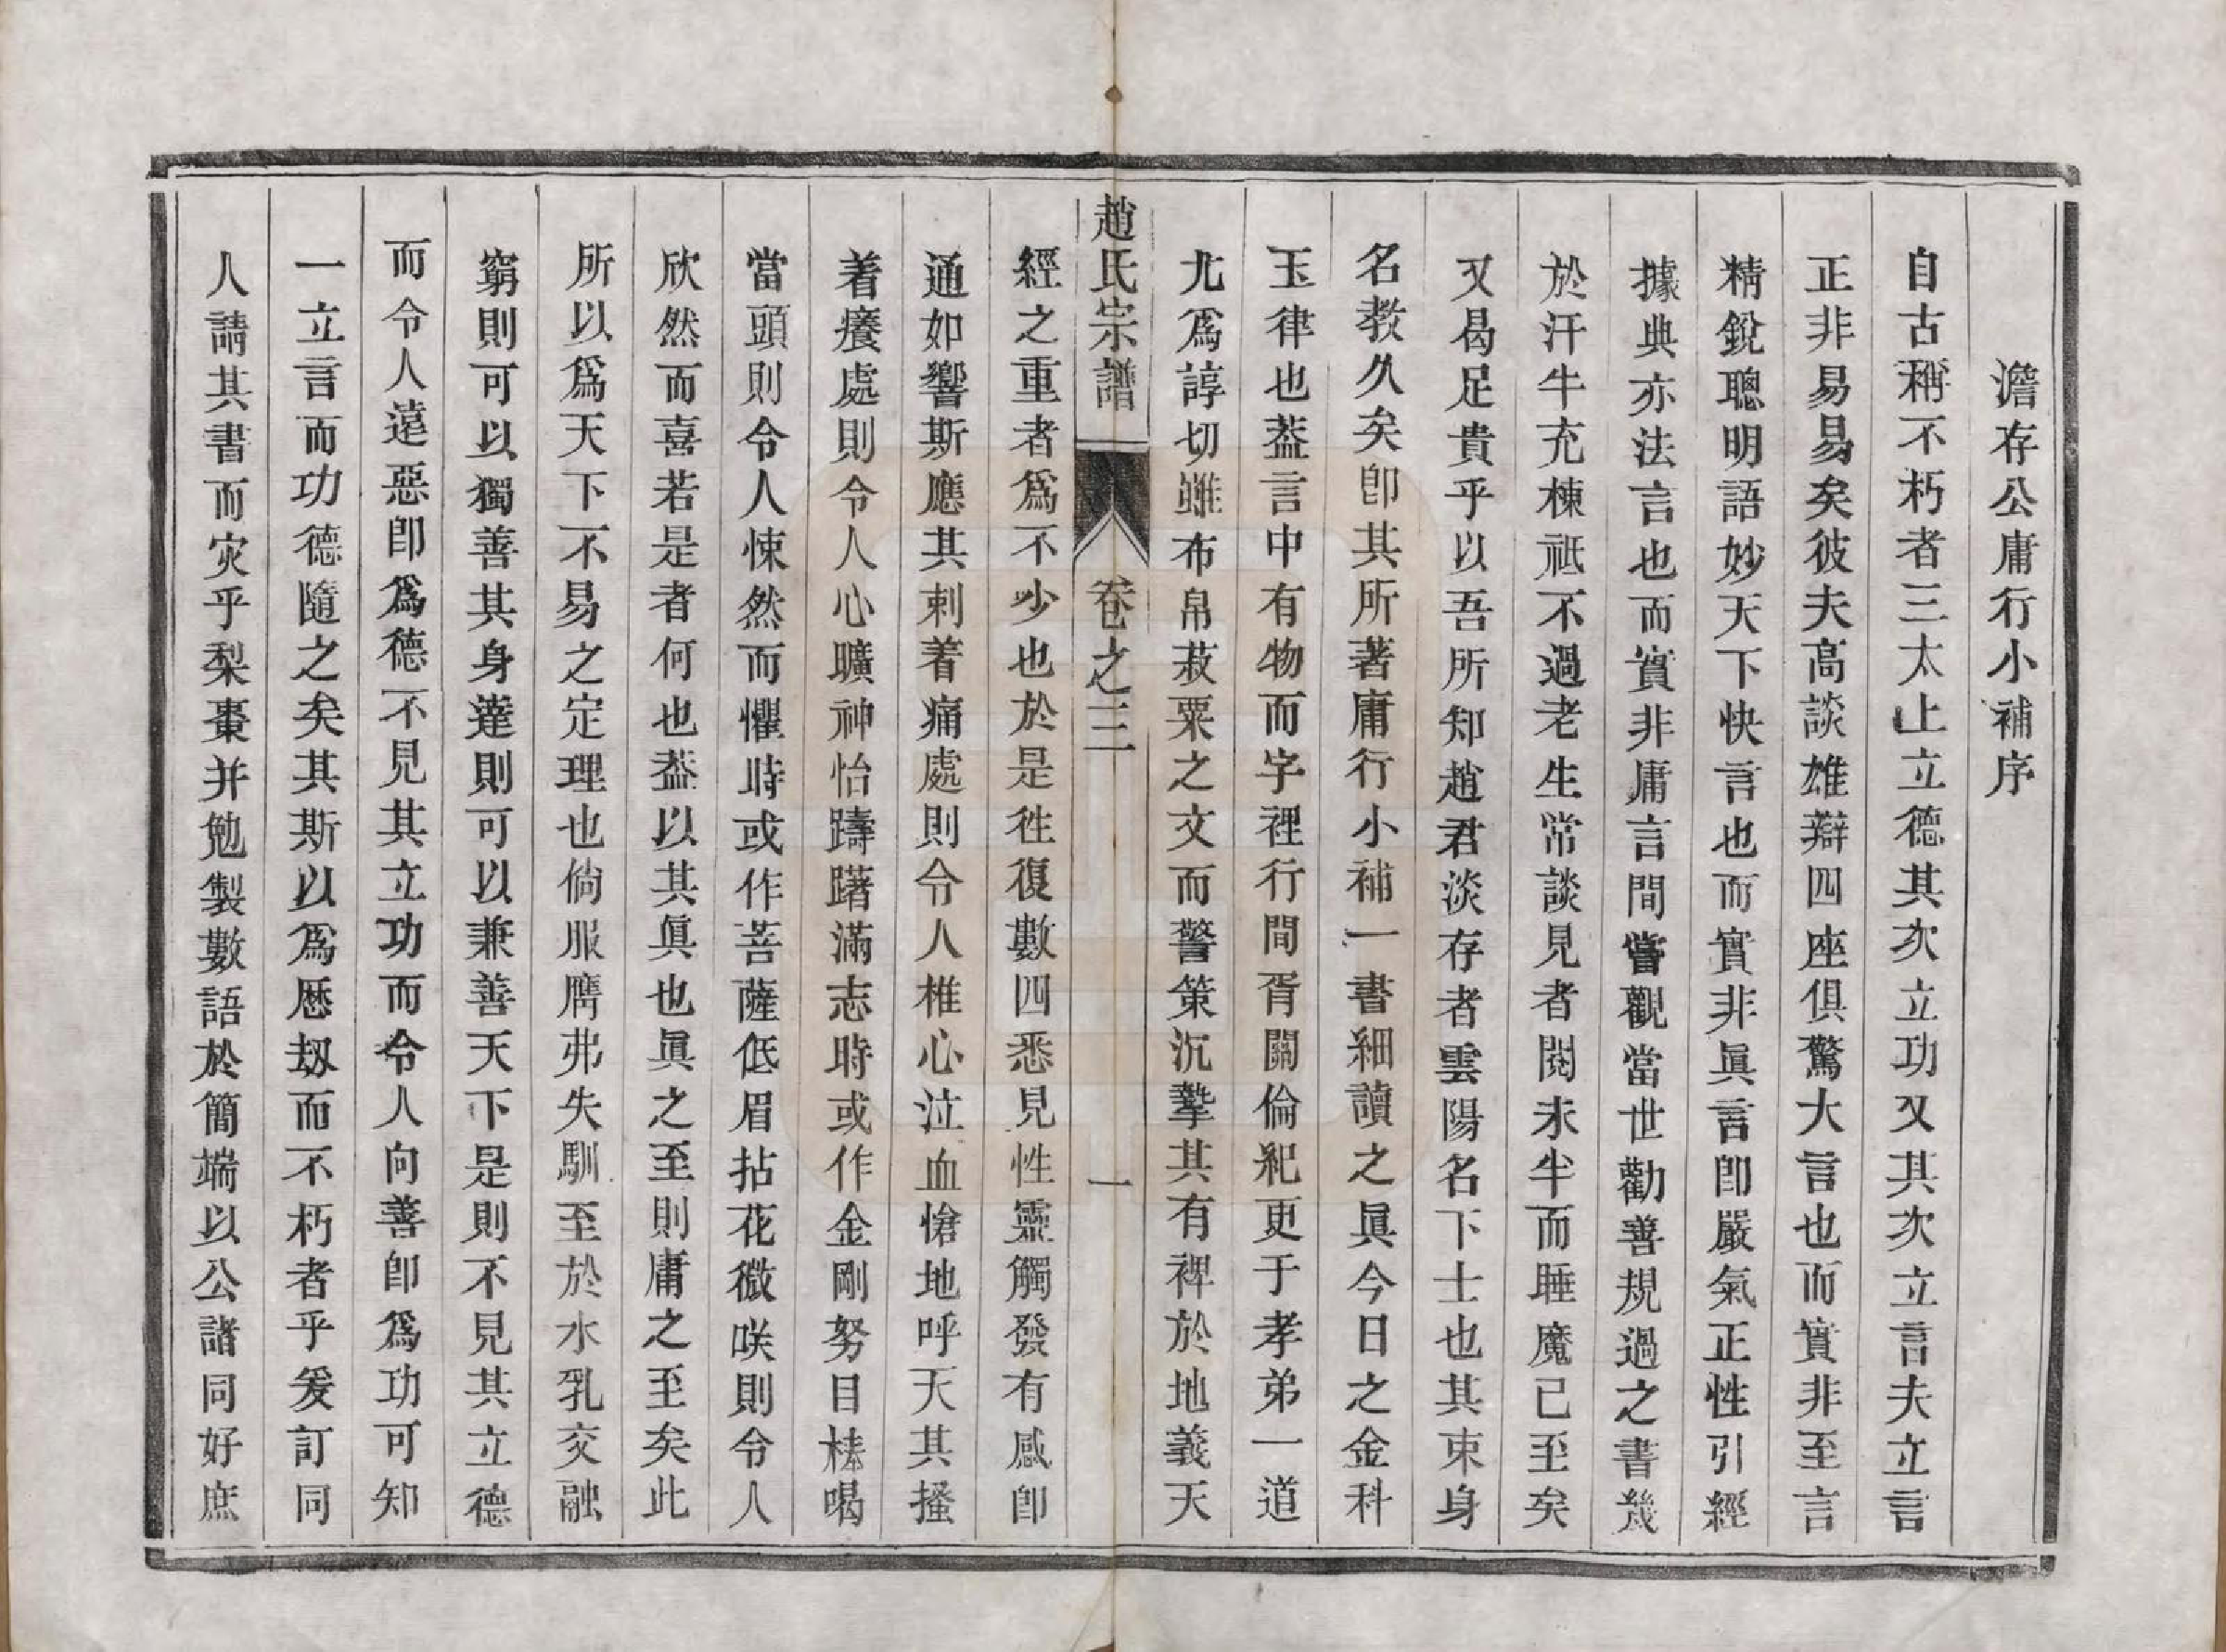 澹存公庸行小補序
自古稱不朽者三太上立德其次立功又其次立言夫立言
正非易易矣彼夫高談雄辯四座俱驚大言也而實非至言
精銳聰明語妙天下快言也而實非眞言卽嚴氣正性引經
據典亦法言也而實非庸言間嘗觀當世勸善規過之書幾
於汗牛充棟祗不過老生常談見者閱未半而睡魔已至矣
又曷足貴乎以吾所知趙君淡存者雲陽名下士也其束身
名教久矣卽其所著庸行小補一書細讀之眞今日之金科
玉律也葢言中有物而字裡行間胥關倫紀更于孝弟一道
尤爲諄切雖布帛菽粟之文而警策沉摯其有裨於地義天
趙氏宗譜 卷之三 一
經之重者爲不少也於是徃復數四悉見性靈觸發有感卽
通如響斯應其刺着痛處則令人椎心泣血愴地呼天其搔
着癢處則令人心曠神怡躊躇滿志時或作金剛努目棒喝
當頭則令人悚然而懼時或作菩薩低眉拈花微咲則令人
欣然而喜若是者何也葢以其眞也眞之至則庸之至矣此
所以爲天下不易之定理也倘服膺弗失馴至於水乳交融
窮則可以獨善其身達則可以兼善天下是則不見其立德
而令人遠惡卽爲德不見其立功而令人向善卽爲功可知
一立言而功德隨之矣其斯以爲歷刼而不朽者乎爰訂同
人請其書而災乎梨棗并勉製數語於簡端以公諸同好庶